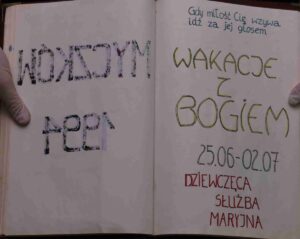 MYCZKÓW'
1994
Gdy miłość Cię wzywa
idź za jej głosem
WAKACJE
Z
BOGIEM
25.06-02.07
DZIEWCZĘCA
SŁUŻBA
MARYJNA